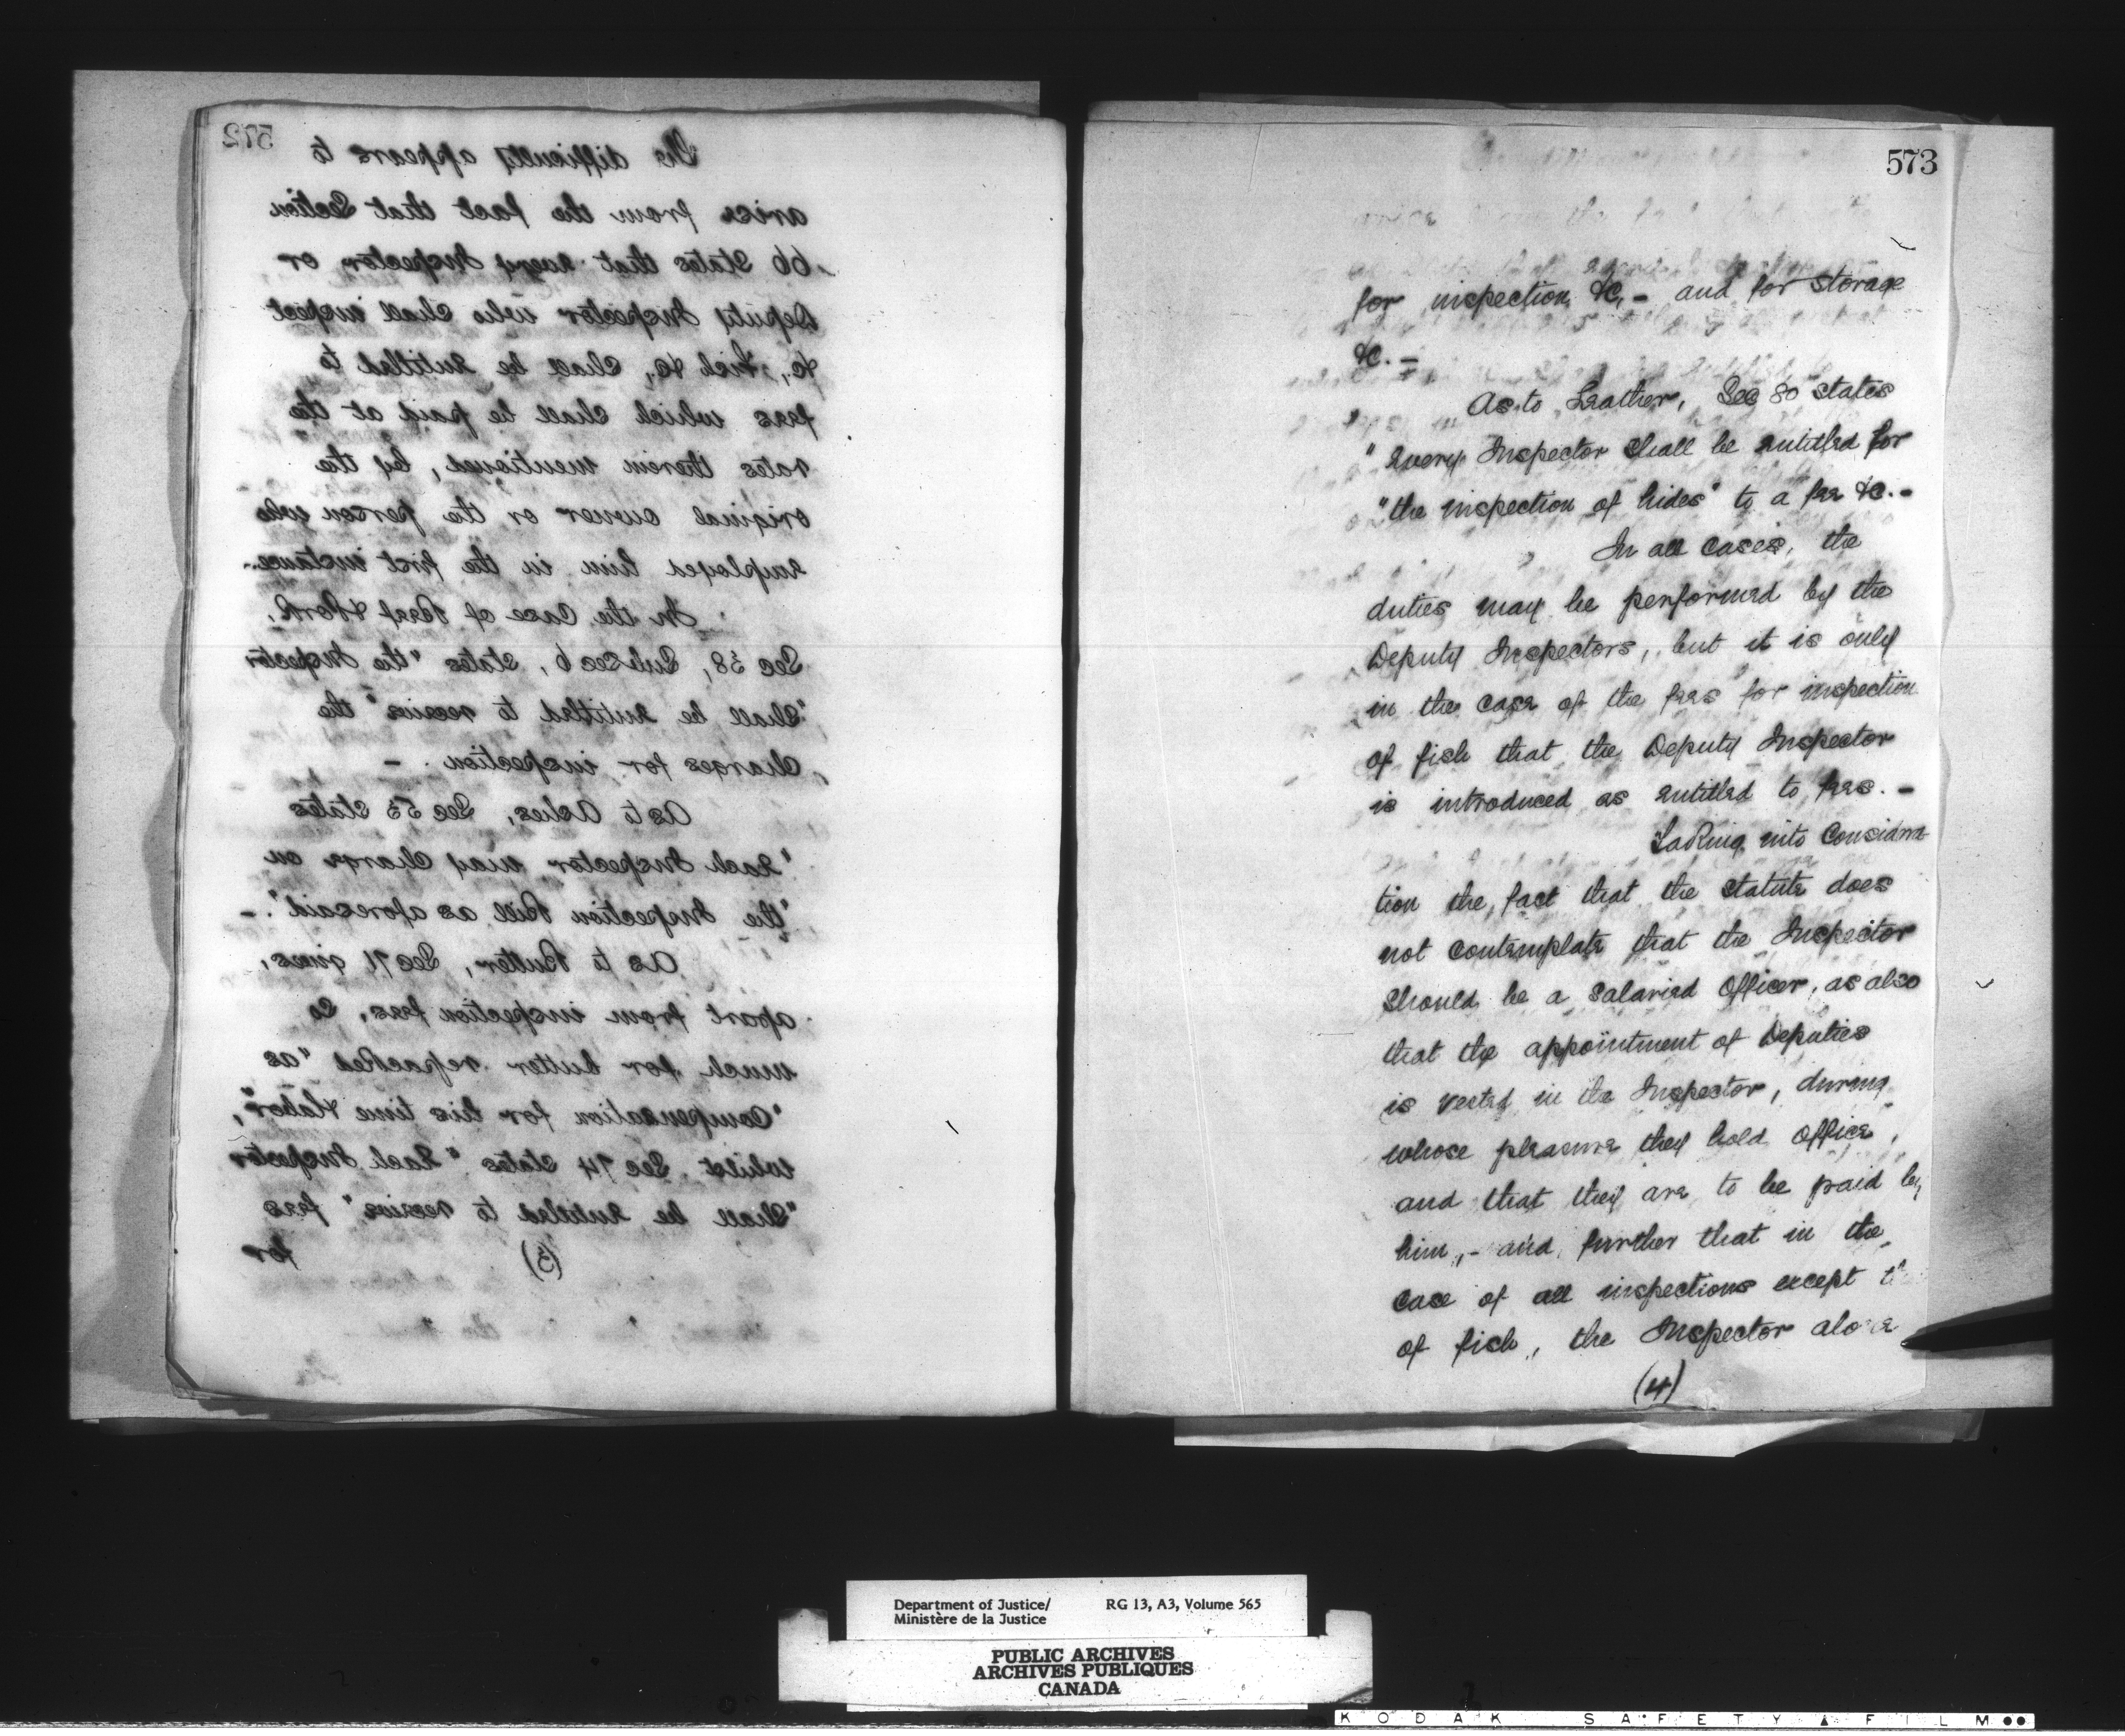 572
The difficulty appears to
arise from the fact that Section
66 states that every Inspector or
Deputy Inspector who shall inspect
&c., Fish &c., shall be entitled to
fees which shall be paid at the
rates therein mentioned, by the
original owner or the person who
employed him in the first instance.-
In the Case of Beef & Pork,
Sec 38, Subsec 6, states "the Inspector
"shall be entitled to receive" the
Charges for inspection. -
As to Ashes, Sec 53 states
"Each Inspector may Charge on
"the Inspection Bill as aforesaid". -
As to Butter, Sec 71 gives,
apart from inspection fees, so
much for butter repacked "as
"Compensation for his time & labor",
whilst Sec 74 states "Each Inspector
"shall be entitled to receive" fees
(3)
for
573
for inspection &c, - and for storage
&c. -
As to Leather, Sec 80 states
"every Inspector shall be entitled for
"the inspection of hides" to a fee &c. -
In all Cases, the
duties may be performed by the
Deputy Inspectors, but it is only
in the case of the fees for inspection
of fish that the Deputy Inspector
is introduced as entitled to fees. -
Taking into Considera
tion the fact that the statute does
not contemplate that the Inspector
should be a salaried Officer, as also
that the appointment of Deputies
is vested in the Inspector, during
whose pleasure they hold Office,
and that they are to be paid by
him, - and further that in the
case of all inspections except th
of fish, the Inspector alone
(4)
Department of Justice/ RG 13, A3, Volume 565
Ministère de la Justice
PUBLIC ARCHIVES
ARCHIVES PUBLIQUES
CANADA
KODAK SAFETY FILM